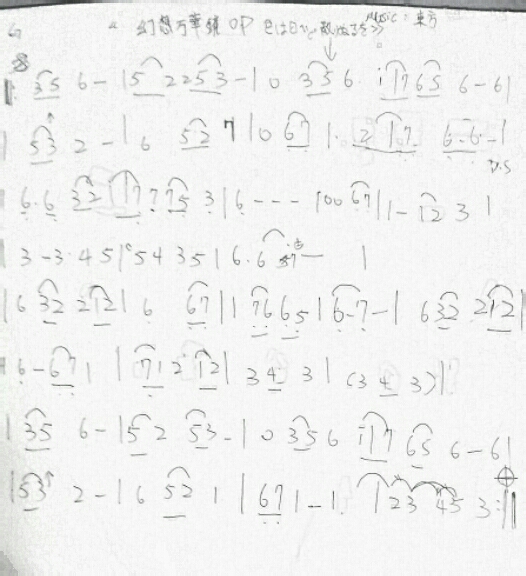 G 幻想万華鏡 OP 色は匂へど 散りぬるを Music: 東方
3 5 6 - | 5 2 2 5 3 - | 0 3 5 6 · i 1 7 6 5 6 - 6 |
| 5 3 2 - | 6 5 2 7 | 0 6 7 1 · 2 1 7 6 - 6 - |
D.S
6 · 6 3 2 1 1 7 7 7 5 3 | 6 - - - | 0 0 6 7 | 1 - 1 2 3 |
3 - 3 · 4 5 | 5 4 3 5 | 6 · 6 5 7 - |
| 6 3 2 2 1 2 | 6 6 7 | 1 7 6 6 5 | 6 - 7 - | 6 3 2 2 1 2 |
6 - 6 7 1 | 7 1 2 1 2 | 3 4 3 | (3 4 3) |
| 3 5 6 - | 5 2 5 3 - | 0 3 5 6 i 1 7 6 5 6 - 6 |
| 5 3 2 - | 6 5 2 1 | 6 7 1 - 1 · 1 2 3 4 5 3 :||